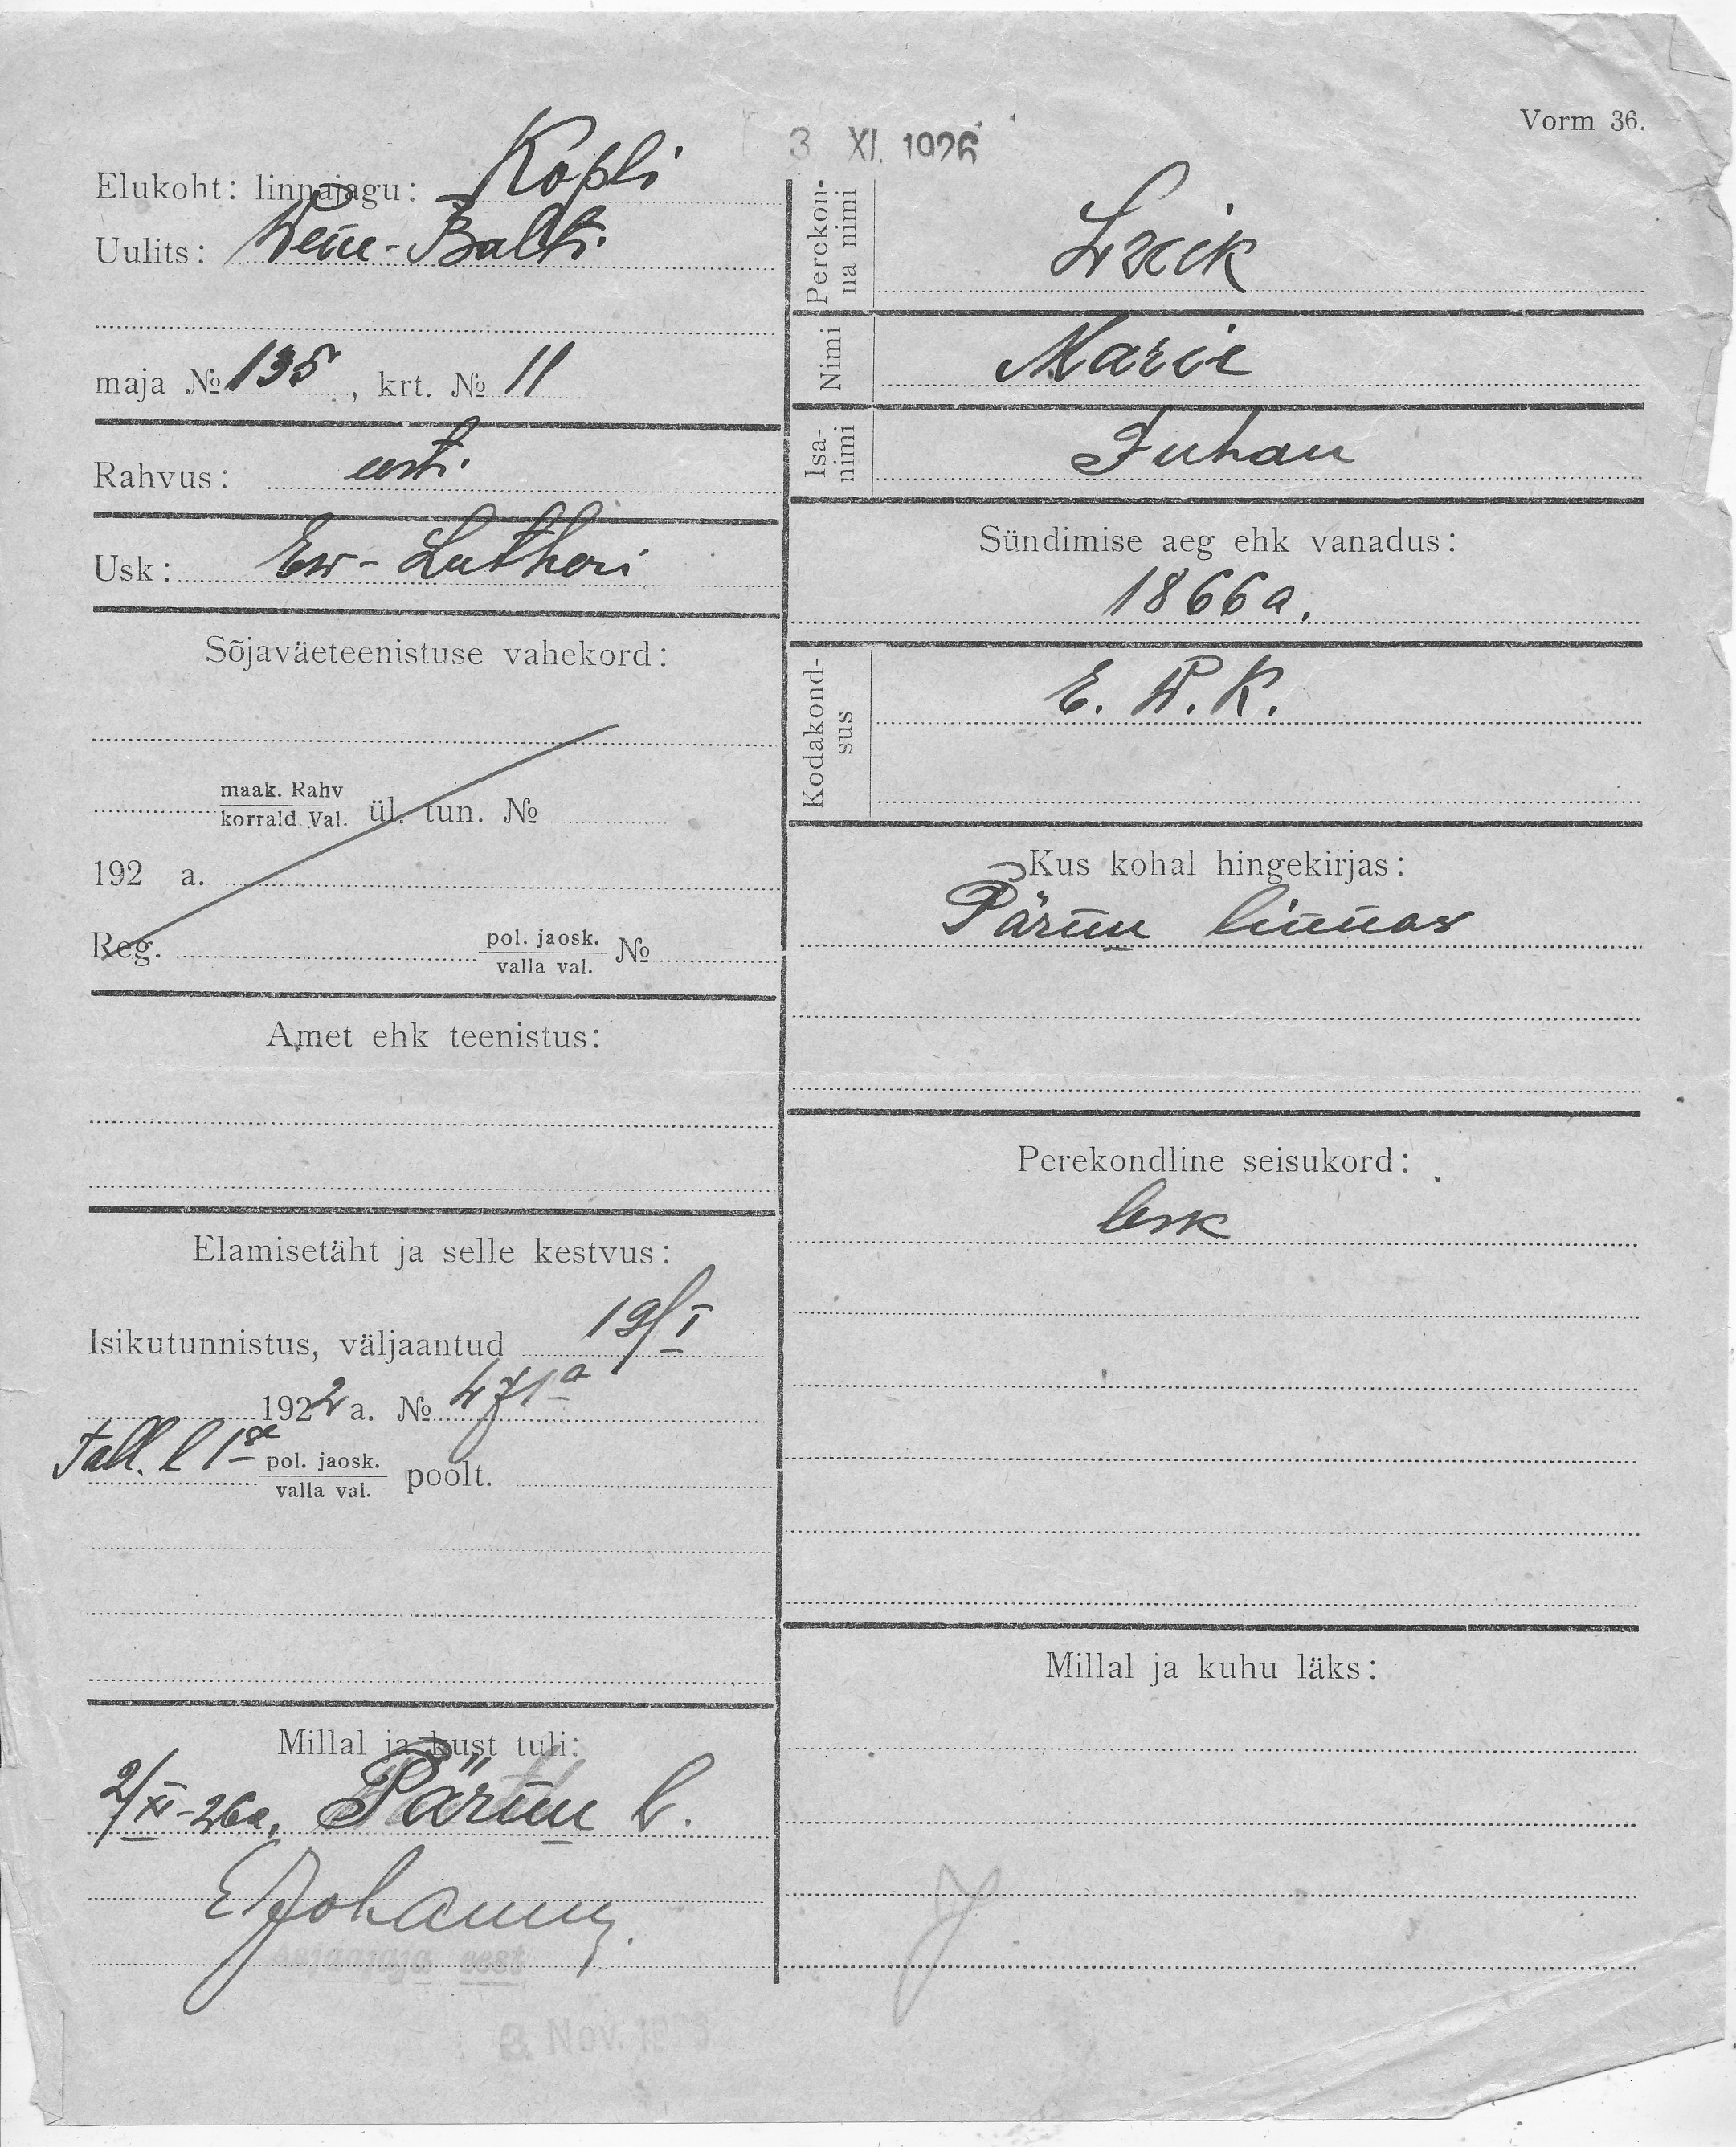 Vorm 36.
3 XI. 1926
Elukoht: linnajagu: Kopli
Uulits: Wene-Balti
maja № 135, krt. № 11
Rahvus: eesti
Usk: Ew-Lutheri
Sõjaväeteenistuse vahekord:
maak. Rahv
korrald Val. ül. tun. №
192 a.
Reg. pol. jaosk.
valla val. №
Amet ehk teenistus:
Elamisetäht ja selle kestvus:
Isikutunnistus, väljaantud 19/I
1922 a. № 471a
Tall. l 1se pol. jaosk.
valla val. poolt.
Millal ja kust tuli:
2/XI-26a. Pärnu l.
Asjaajaja eest
3. Nov. 1926
Perekon-
na nimi
Nimi Marie
Isa-
nimi Juhan
Sündimise aeg ehk vanadus:
1866 a.
Kodakond-
sus E. W. K.
Kus kohal hingekirjas:
Pärnu linnas
Perekondline seisukord:
lesk
Millal ja kuhu läks: